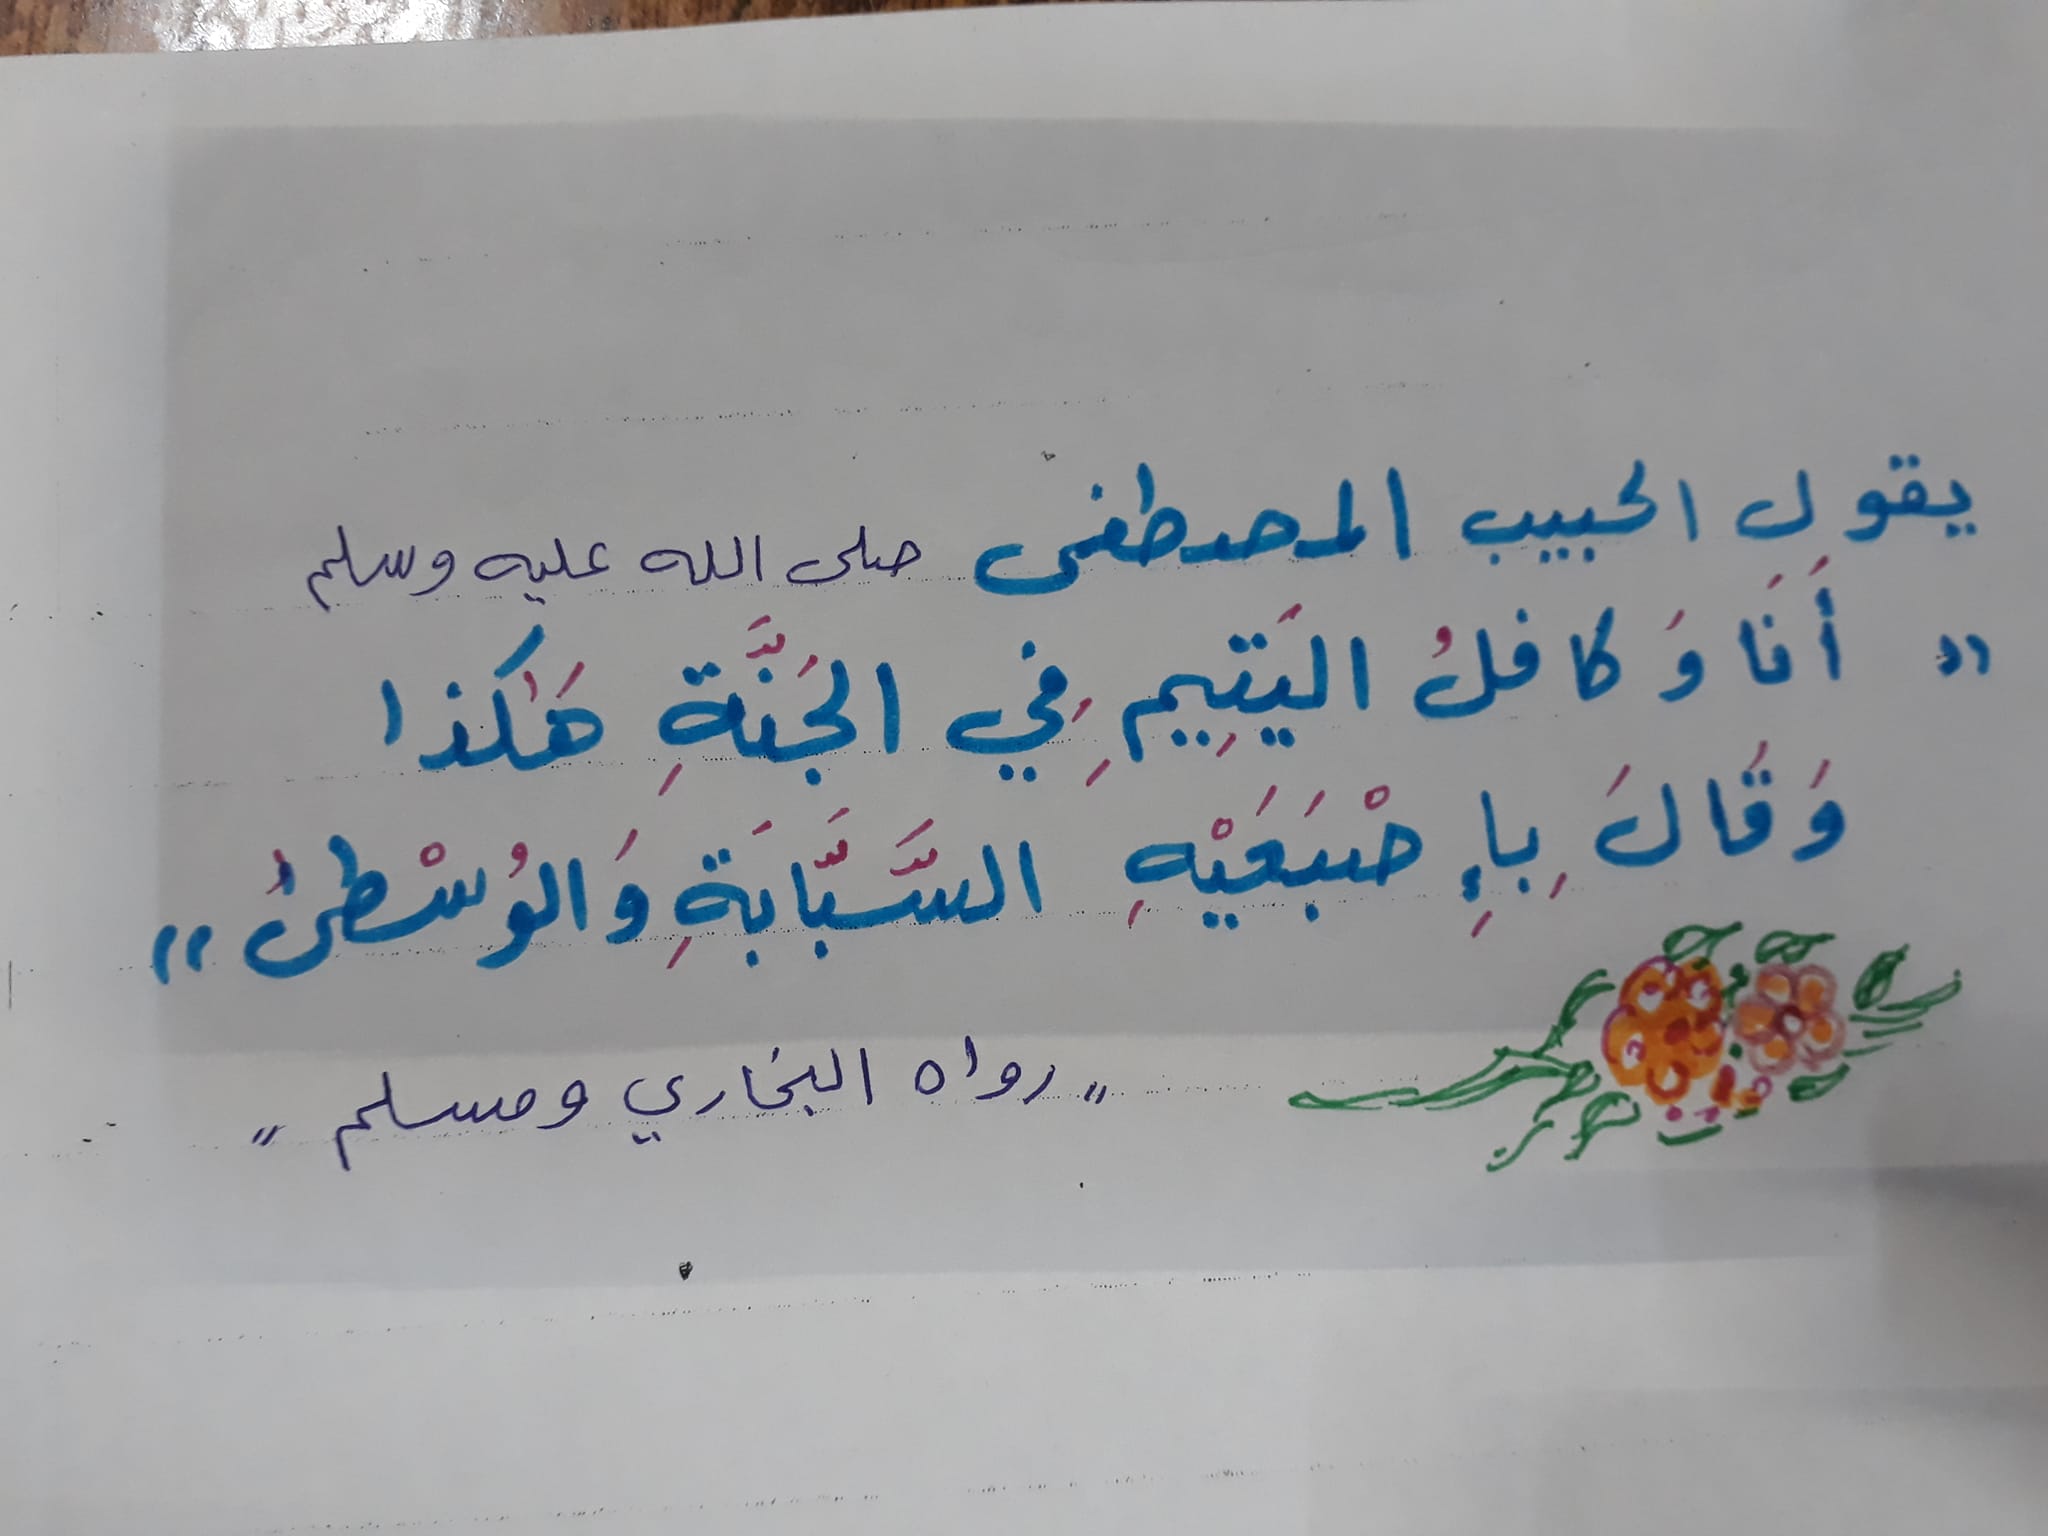 يقول الحبيب المصطفى صلى الله عليه وسلم
" أَنَا وَكافلُ اليَتِيمِ فِي الجَنَّةِ هَٰكذا
وَقَالَ بِإِصْبَعَيْهِ السَّبَّابَةِ وَالوُسْطىُ "
" رواه البخاري ومسلم "